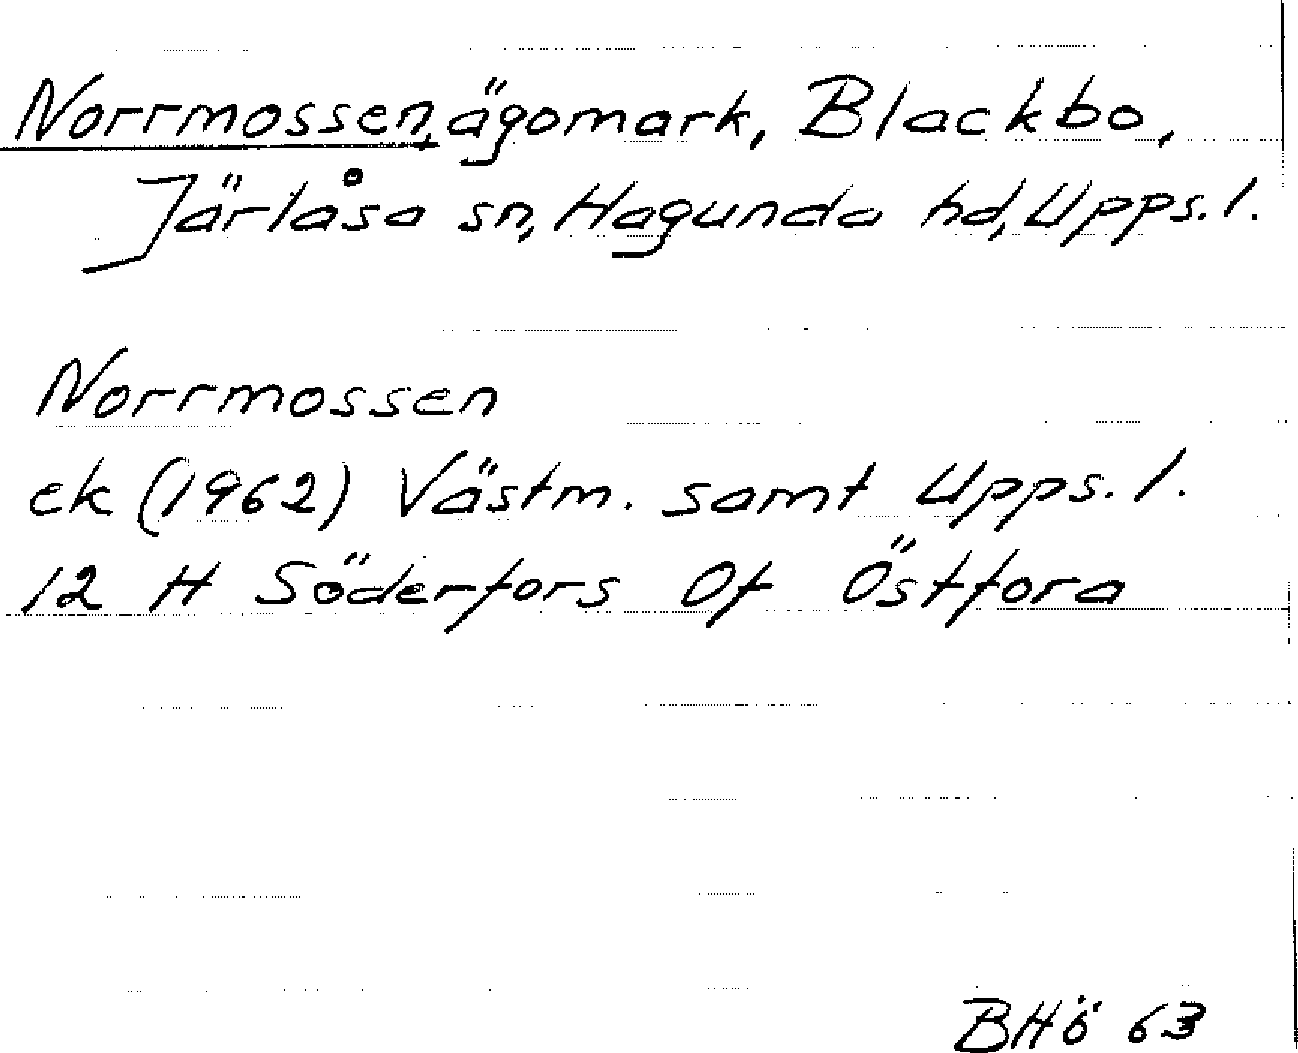 Norrmossen, ägomark, Blackbo,
Järlåsa sn, Hagunda hd, Upps. l.
Norrmossen
ek (1962) Västm. samt Upps. l.
12 H Söderfors 0f Östfora
BHö 63